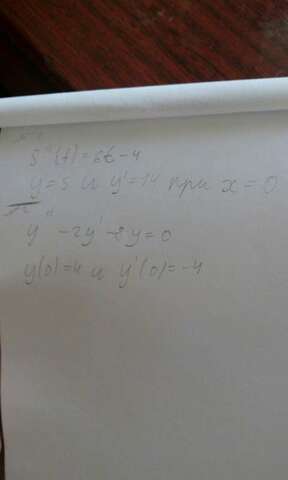 S''(t)=6t-4
y=5 и y'=14 при x=0
y''-2y'-8y=0
y(0)=4 и y'(0)=-4